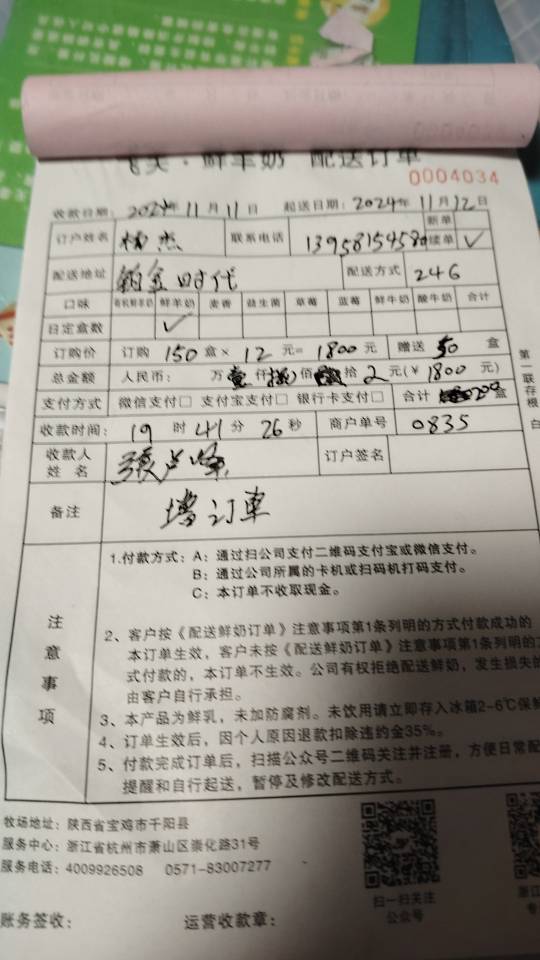 飞天·鲜羊奶 配送订单
0004034
收款日期: 2024年 11月 11日 起送日期: 2024年 11月 12日
订户姓名 杨杰 联系电话 新单
续单 ✓
配送地址 铂金时代 配送方式 246
口味 鲜羊奶 麦香 益生菌 草莓 蓝莓 鲜牛奶 酸牛奶 合计
日定盒数 ✓
订购价 订购 150 盒× 12 元= 1800 元 赠送 50 盒
总金额 人民币: 万 仟 佰 拾 元(¥ 1800 元)
支付方式 微信支付□ 支付宝支付□ 银行卡支付□ 合计 200 盒
收款时间: 19 时 41 分 26 秒 商户单号 0835
收款人
姓名 订户签名
备注 增订单
第一联存根 白
注意事项
1.付款方式: A: 通过扫公司支付二维码支付宝或微信支付。
B: 通过公司所属的卡机或扫码机打码支付。
C: 本订单不收取现金。
2、客户按《配送鲜奶订单》注意事项第1条列明的方式付款成功的
本订单生效，客户未按《配送鲜奶订单》注意事项第1条列明的
式付款的，本订单不生效。公司有权拒绝配送鲜奶，发生损失的
由客户自行承担。
3、本产品为鲜乳，未加防腐剂。未饮用请立即存入冰箱2-6℃保鲜
4、订单生效后，因个人原因退款扣除违约金35%。
5、付款完成订单后，扫描公众号二维码关注并注册，方便日常配
提醒和自行起送，暂停及修改配送方式。
牧场地址: 陕西省宝鸡市千阳县
服务中心: 浙江省杭州市萧山区崇化路31号
服务电话: 4009926508 0571-83007277
扫一扫关注
公众号
账务签收: 运营收款章: